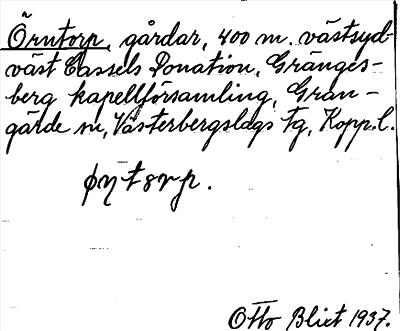 Örntorp, gårdar, 400 m. västsyd-
väst Cassels Donation, Gränges-
berg kapellförsamling, Gran-
gärde sn, Västerbergslags tg, Kopp.l.
øŋtorp.
Otto Blixt 1937.